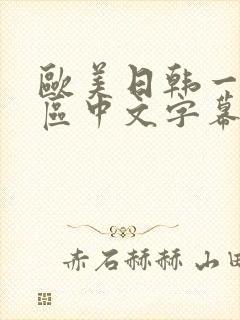 歐美日韩一
區中文字幕
赤石赫赫 山田